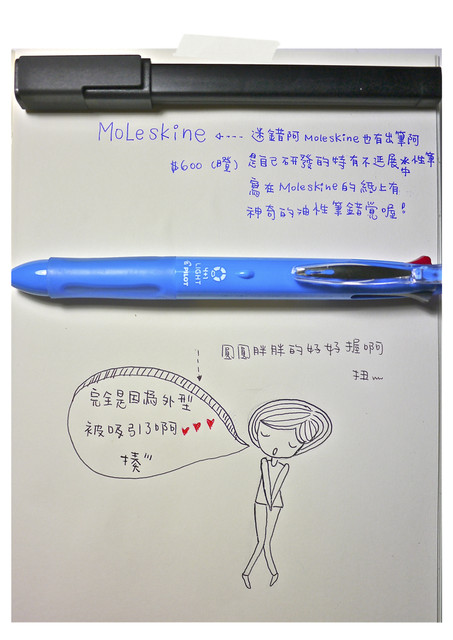 Moleskine <---- 沒錯阿 Moleskine也有出筆阿
$600 (瞪) 是自己研發的特有不透展中性筆
寫在Moleskine的紙上有
神奇的油性筆錯覺喔!
4+1
LIGHT
PILOT
圓圓胖胖的好好握啊
扭~~
完全是因為外型
被吸引了啊
揍